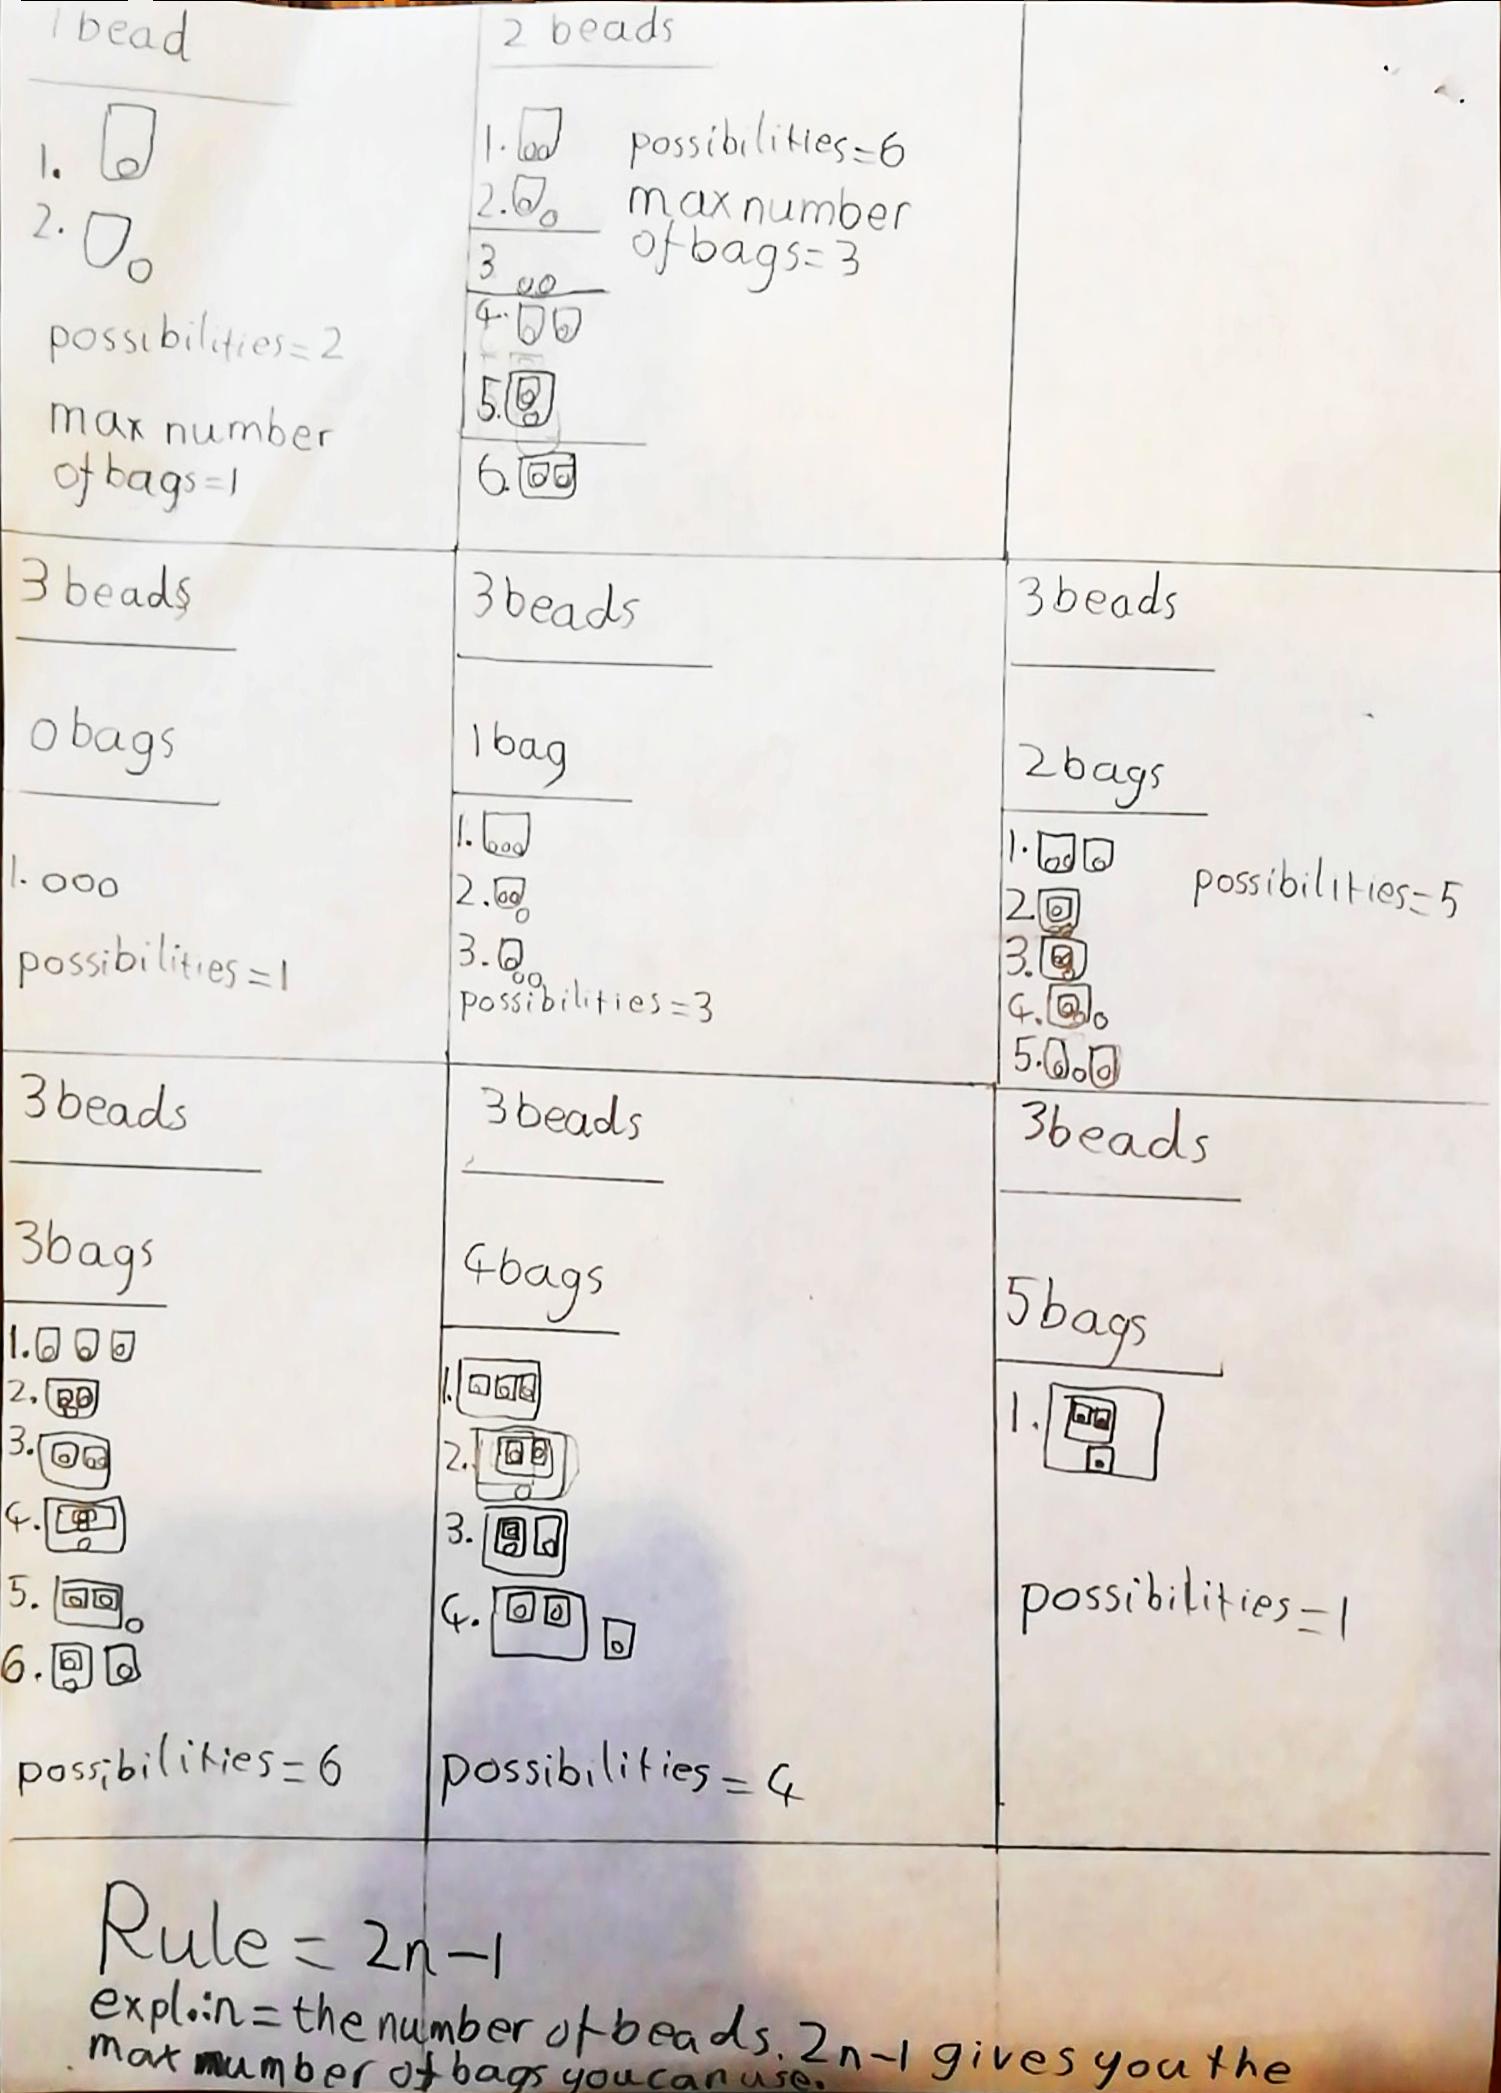 1 bead
1.
2.
possibilities=2
max number
of bags=1
2 beads
1.
2.
3
4.
5.
6.
possibilities=6
max number
of bags=3
3 beads
0 bags
1.
possibilities=1
3 beads
1 bag
1.
2.
3.
possibilities=3
3 beads
2 bags
1.
2.
3.
4.
5.
possibilities=5
3 beads
3 bags
1.
2.
3.
4.
5.
6.
possibilities=6
3 beads
4 bags
1.
2.
3.
4.
possibilities=4
3 beads
5 bags
1.
possibilities=1
Rule = 2n-1
explain = the number of beads. 2n-1 gives you the
max number of bags you can use.